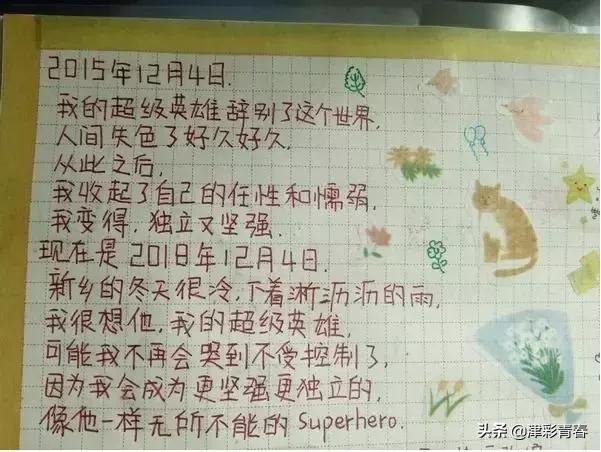 2015年12月4日.
我的超级英雄辞别了这个世界,
人间失色了好久好久.
从此之后,
我收起了自己的任性和懦弱,
我变得,独立又坚强.
现在是2018年12月4日.
新乡的冬天很冷,下着淅沥沥的雨,
我很想他,我的超级英雄,
可能我不再会哭到不受控制了,
因为我会成为更坚强更独立的,
像他一样无所不能的Superhero.
头条@津彩青春